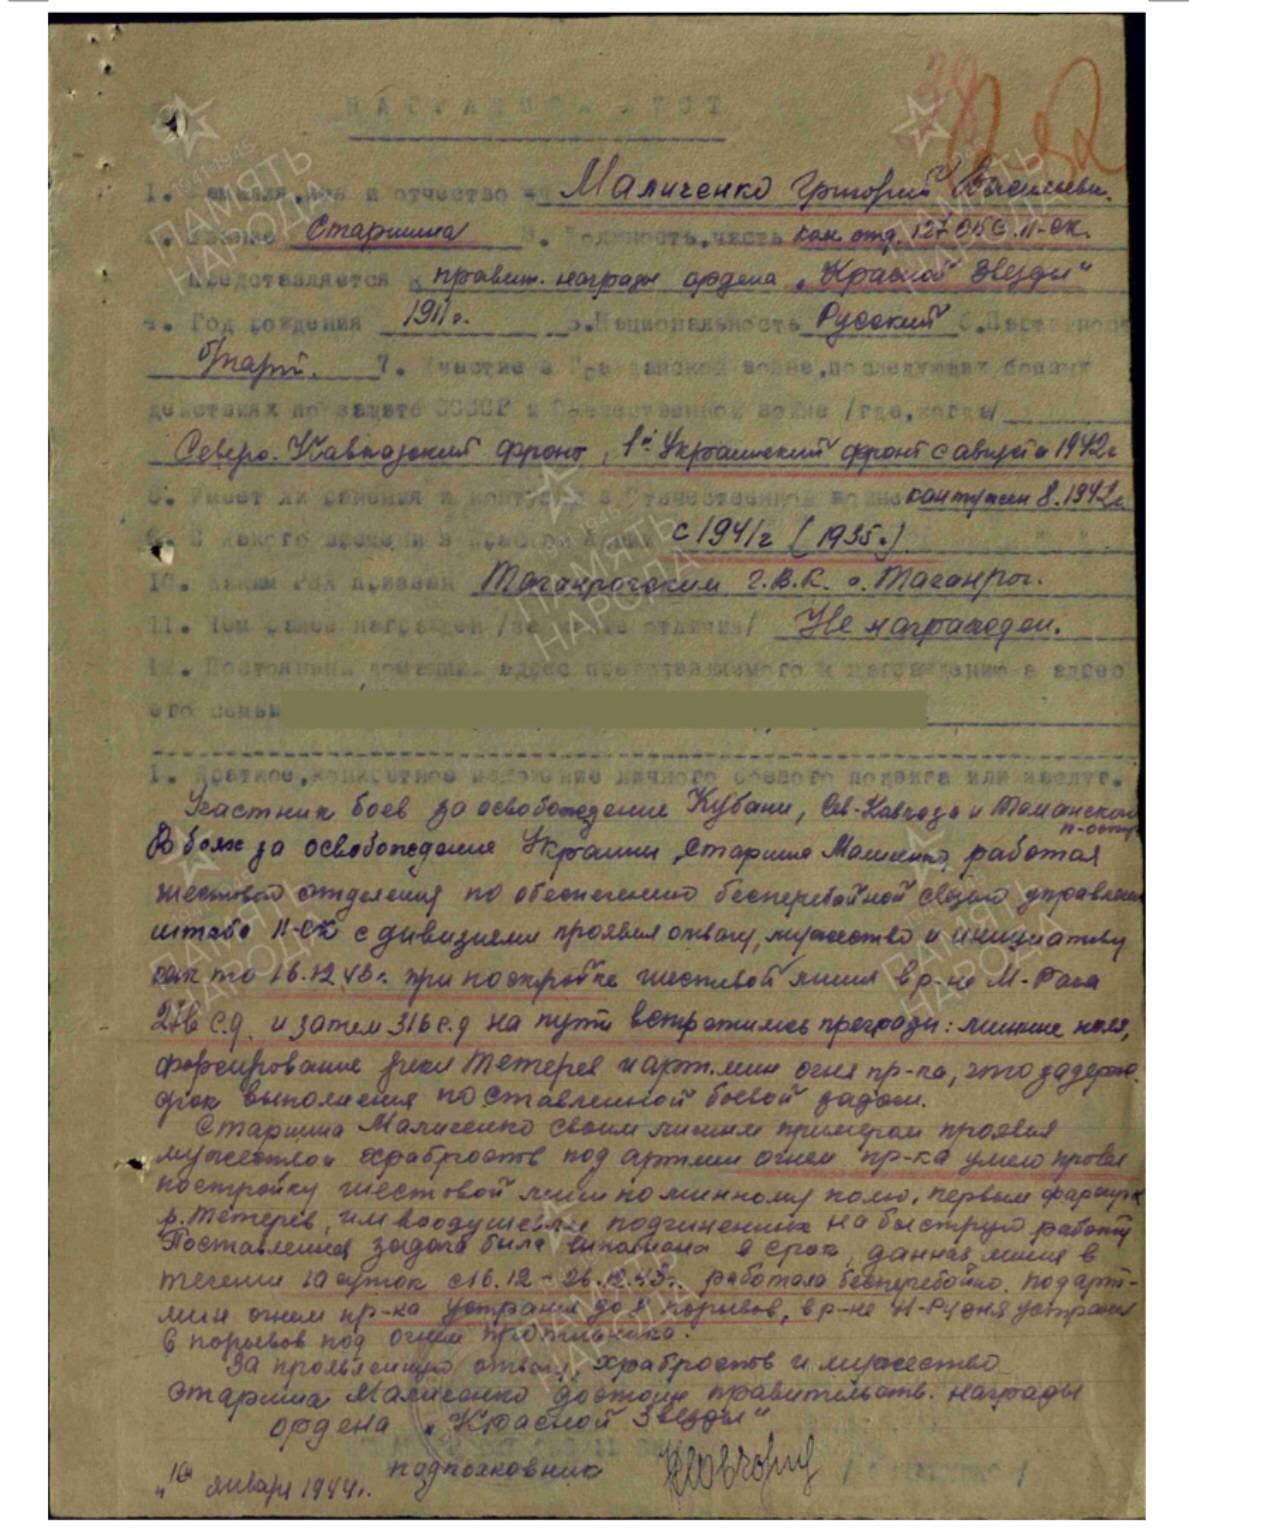 НАГРАДНОЙ ЛИСТ
1. Фамилия, имя и отчество Маличенко Григорий Васильеви.
2. Звание Старшина 3. Должность, часть ком. отд. 127 ОБС 11-СК.
Представляется к правит. награде ордена „Красной Звезды"
4. Год рождения 1911 г. 5. Национальность Русский 6. Партийность
б/парт. 7. Участие в Гражданской войне, последующих боевых
действиях по защите СССР и Отечественной войне /где, когда/
Северо-Кавказский фронт, 1й Украинский фронт с августа 1942 г
8. Имеет ли ранения и контузии в Отечественной войне контужен 8.1942 г.
9. С какого времени в Красной Армии с 1941 г (1935 г.)
10. Каким РВК призван Таганрогским Г.В.К. г. Таганрог.
11. Чем ранее награжден /за какие отличия/ Не награжден.
12. Постоянный домашний адрес представляемого к награждению и адрес
его семьи
1. Краткое, конкретное изложение личного боевого подвига или заслуг.
Участник боев за освобождение Кубани, Сев-Кавказа и Таманского
п-остр
В боях за освобождение Украины, старшина Маличенко, работая
шестовой отделения по обеспечению бесперебойной связью управления
штаба 11-СК с дивизиями проявил отвагу, мужество и инициативу
как то 16.12.43 г. при постройке шестовой линии в р-не М-Рача
276 с.д. и затем 316 с.д на пути встретились преграды: минные поля,
форсирование реки Тетерев и арт.мин огня пр-ка, что задерж.
срок выполнения поставленной боевой задачи.
Старшина Маличенко своим личным примером проявил
мужество и храбрость под артмин огнем пр-ка умело провел
постройку шестовой линии по минному полю, первым форсируя
р. Тетерев, им воодушевлял подчиненных на быструю работу
Поставленная задача была выполнена в срок, данная линия в
течении 10 суток с 16.12 - 26.12.43 г. работала бесперебойно. под арт-
мин огнем пр-ка устранил до порывов, в р-не Н-Рудня устранил
6 порывов под огнем противника.
За проявленную отвагу, храбрость и мужество
старшина Маличенко достоин правительств. награды
ордена „Красной Звезды"
подполковник
„10" января 1944 г.
ПАМЯТЬ
НАРОДА
1941-1945